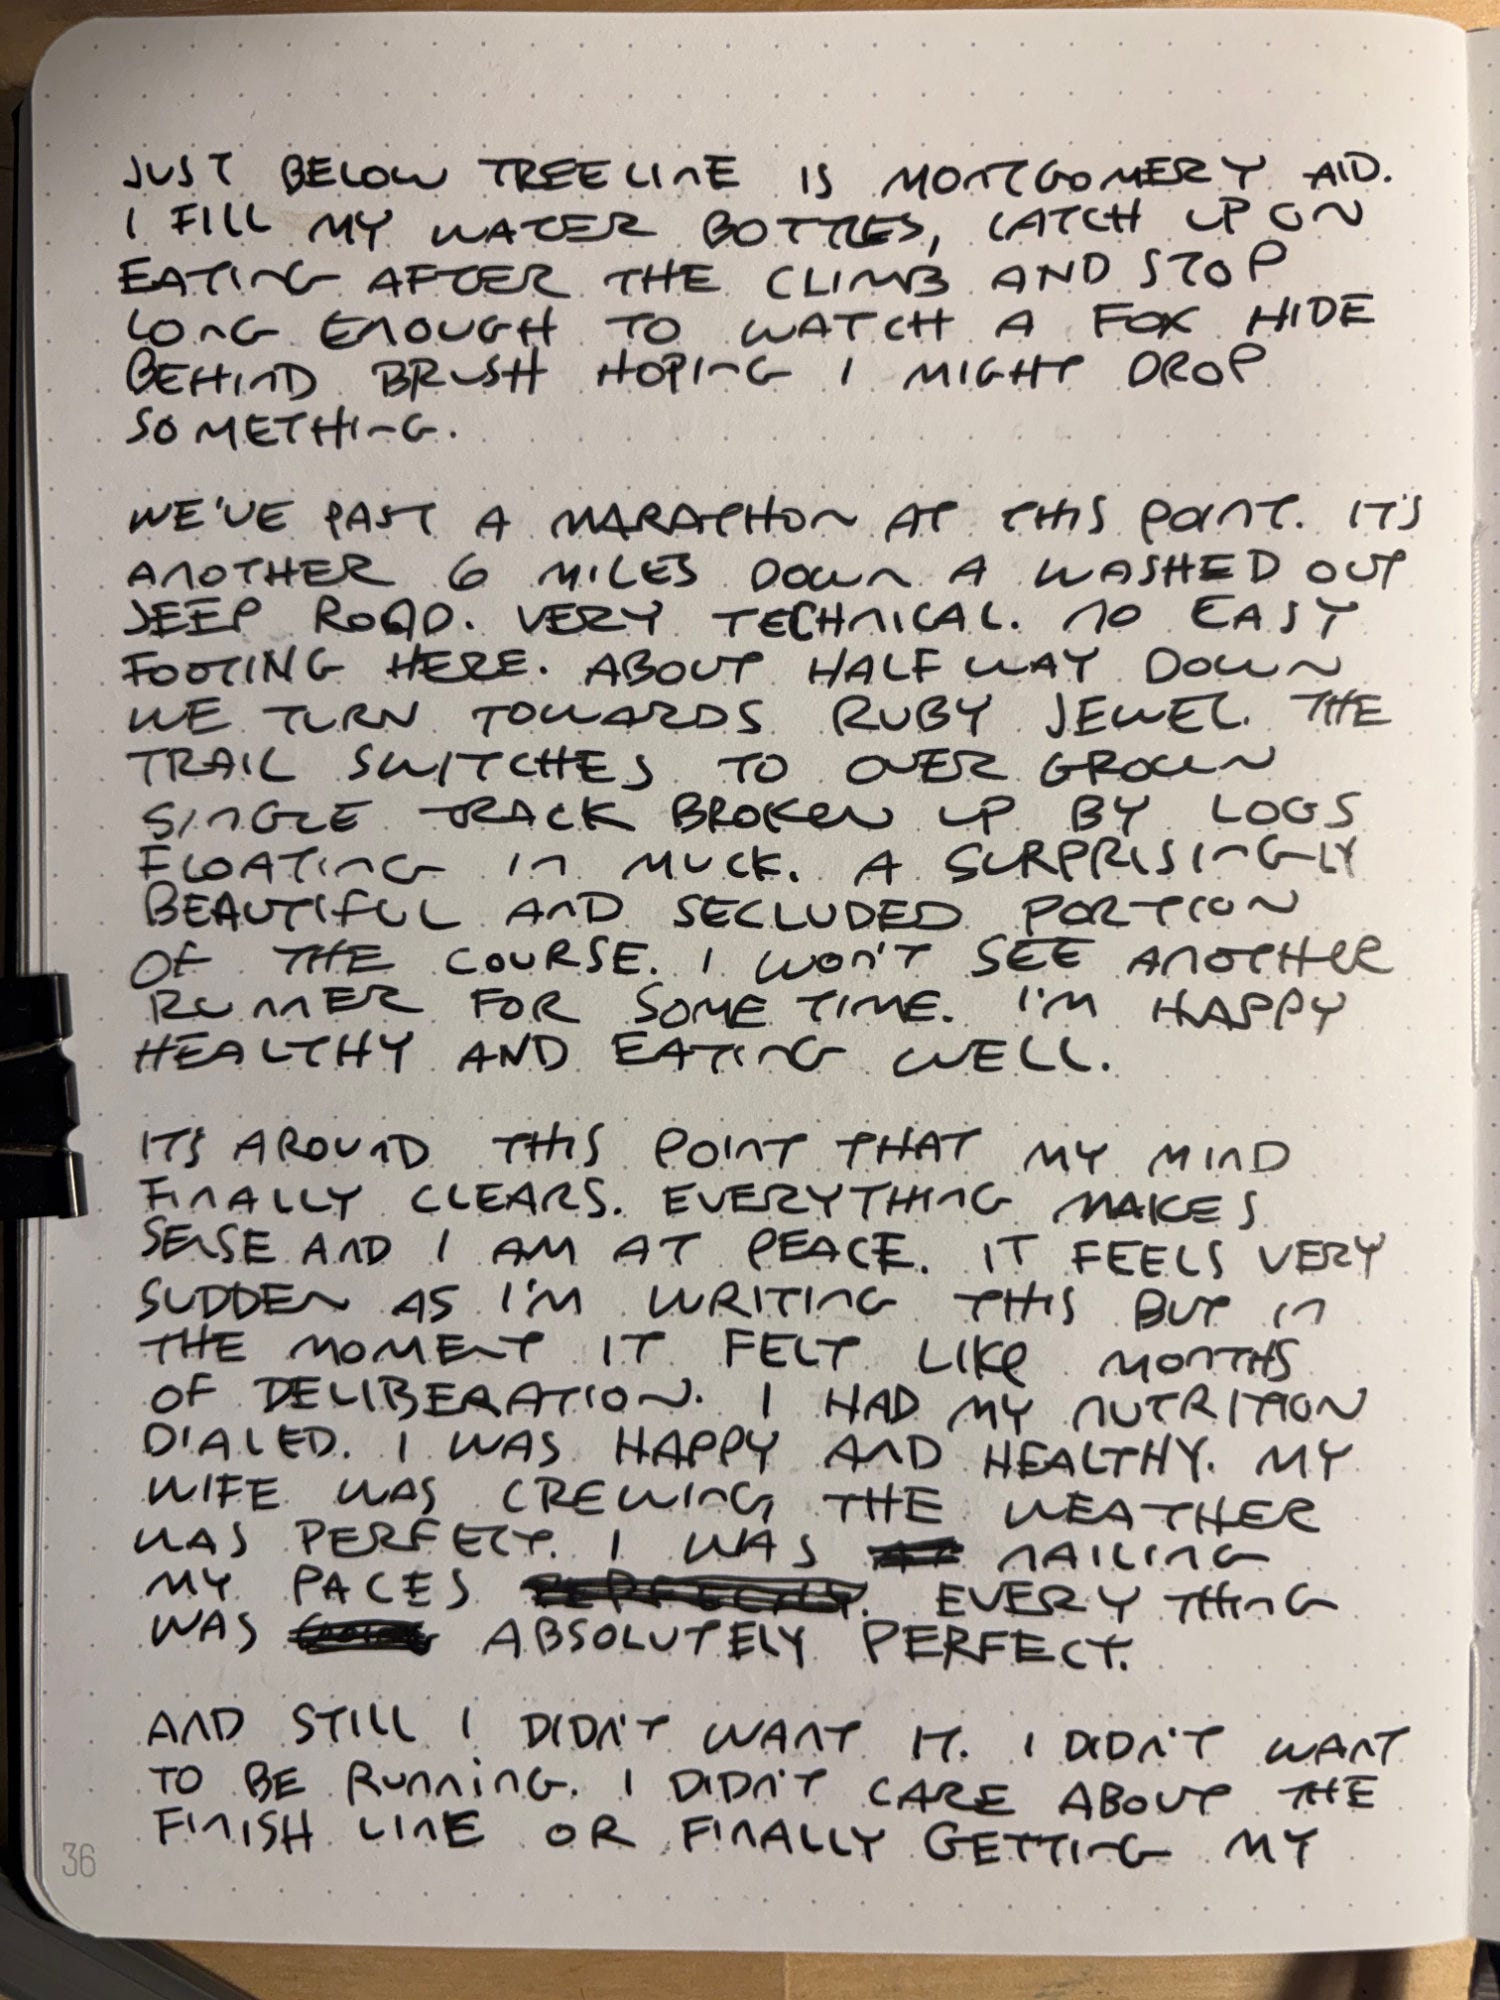 JUST BELOW TREELINE IS MONTGOMERY AID.
I FILL MY WATER BOTTLES, CATCH UP ON
EATING AFTER THE CLIMB AND STOP
LONG ENOUGH TO WATCH A FOX HIDE
BEHIND BRUSH HOPING I MIGHT DROP
SOMETHING.
WE'VE PAST A MARATHON AT THIS POINT. IT'S
ANOTHER 6 MILES DOWN A WASHED OUT
JEEP ROAD. VERY TECHNICAL. NO EASY
FOOTING HERE. ABOUT HALF WAY DOWN
WE TURN TOWARDS RUBY JEWEL. THE
TRAIL SWITCHES TO OVER GROWN
SINGLE TRACK BROKEN UP BY LOGS
FLOATING IN MUCK. A SURPRISINGLY
BEAUTIFUL AND SECLUDED PORTION
OF THE COURSE. I WON'T SEE ANOTHER
RUNNER FOR SOME TIME. I'M HAPPY
HEALTHY AND EATING WELL.
ITS AROUND THIS POINT THAT MY MIND
FINALLY CLEARS. EVERYTHING MAKES
SENSE AND I AM AT PEACE. IT FEELS VERY
SUDDEN AS I'M WRITING THIS BUT IN
THE MOMENT IT FELT LIKE MONTHS
OF DELIBERATION. I HAD MY NUTRITION
DIALED. I WAS HAPPY AND HEALTHY. MY
WIFE WAS CREWING, THE WEATHER
WAS PERFECT. I WAS NAILING
MY PACES. EVERY THING
WAS ABSOLUTELY PERFECT.
AND STILL I DIDN'T WANT IT. I DIDN'T WANT
TO BE RUNNING. I DIDN'T CARE ABOUT THE
FINISH LINE OR FINALLY GETTING MY
36